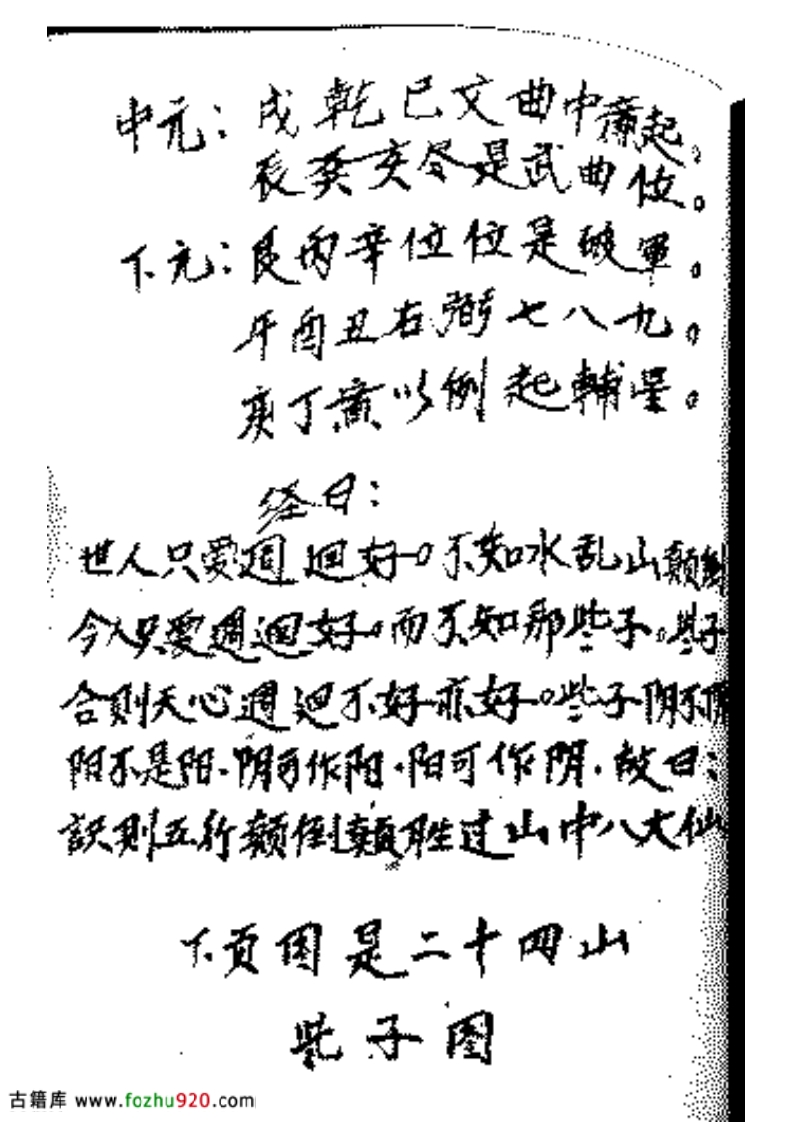 中元：戌乾巳文曲中廉起。
辰巽亥尽是武曲位。
下元：艮丙辛位位是破軍。
午酉丑右弼七八九。
庚丁寅以例起輔星。
经曰：
世人只爱週迴好。不知水乱山颠倒
今人只爱週迴好。而不知那些子。些子
合则天心週迴不好亦好。些子阴不是阴
阳不是阳．阴可作阳．阳可作阴．故曰：
識则五行颠倒颠胜过山中八大仙
下页图是二十四山
些子图
古籍库 www.fozhu920.com